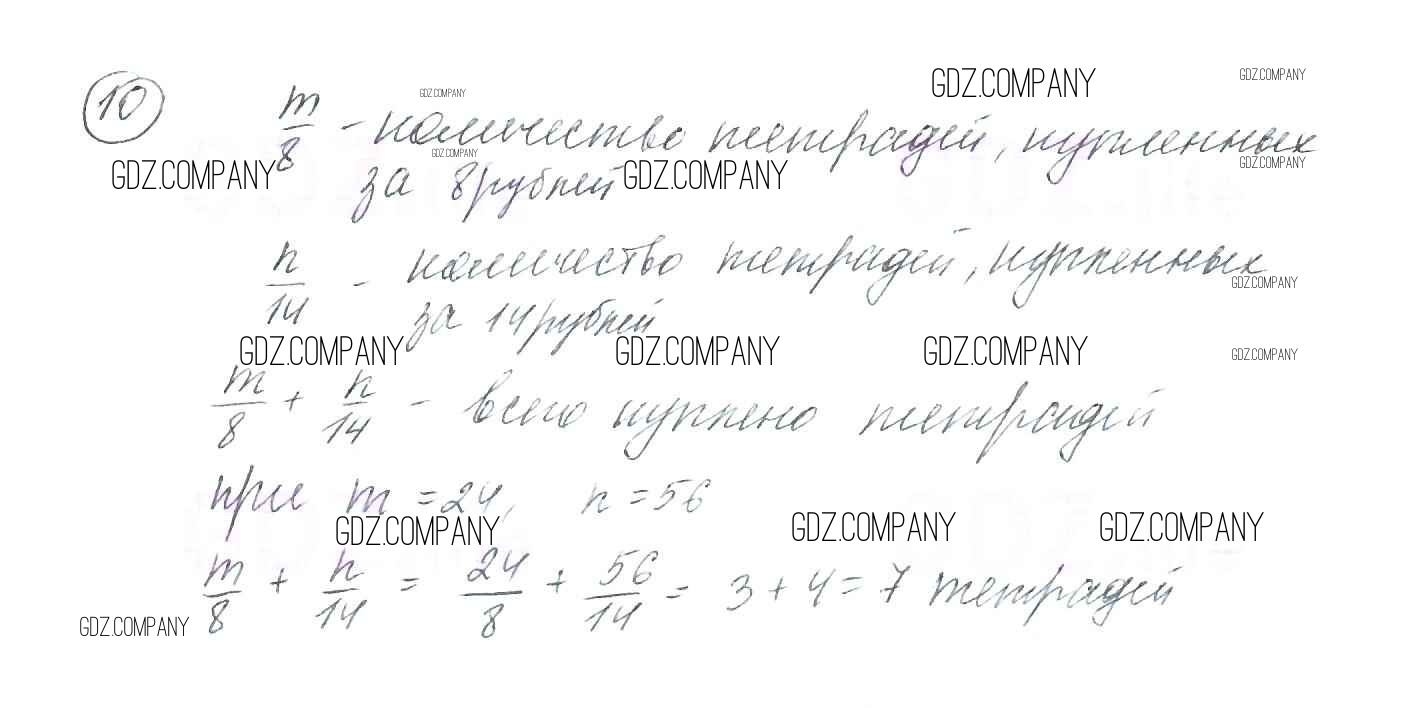 GDZ.COMPANY GDZ.COMPANY
GDZ.COMPANY
10 m/8 - количество тетрадей, купленных
GDZ.COMPANY GDZ.COMPANY
GDZ.COMPANY за 8 рублей GDZ.COMPANY
n/14 - количество тетрадей, купленных
GDZ.COMPANY
за 14 рублей
GDZ.COMPANY GDZ.COMPANY GDZ.COMPANY GDZ.COMPANY
m/8 + n/14 - всего куплено тетрадей
при m = 24, n = 56
GDZ.COMPANY GDZ.COMPANY GDZ.COMPANY
m/8 + n/14 = 24/8 + 56/14 = 3 + 4 = 7 тетрадей
GDZ.COMPANY